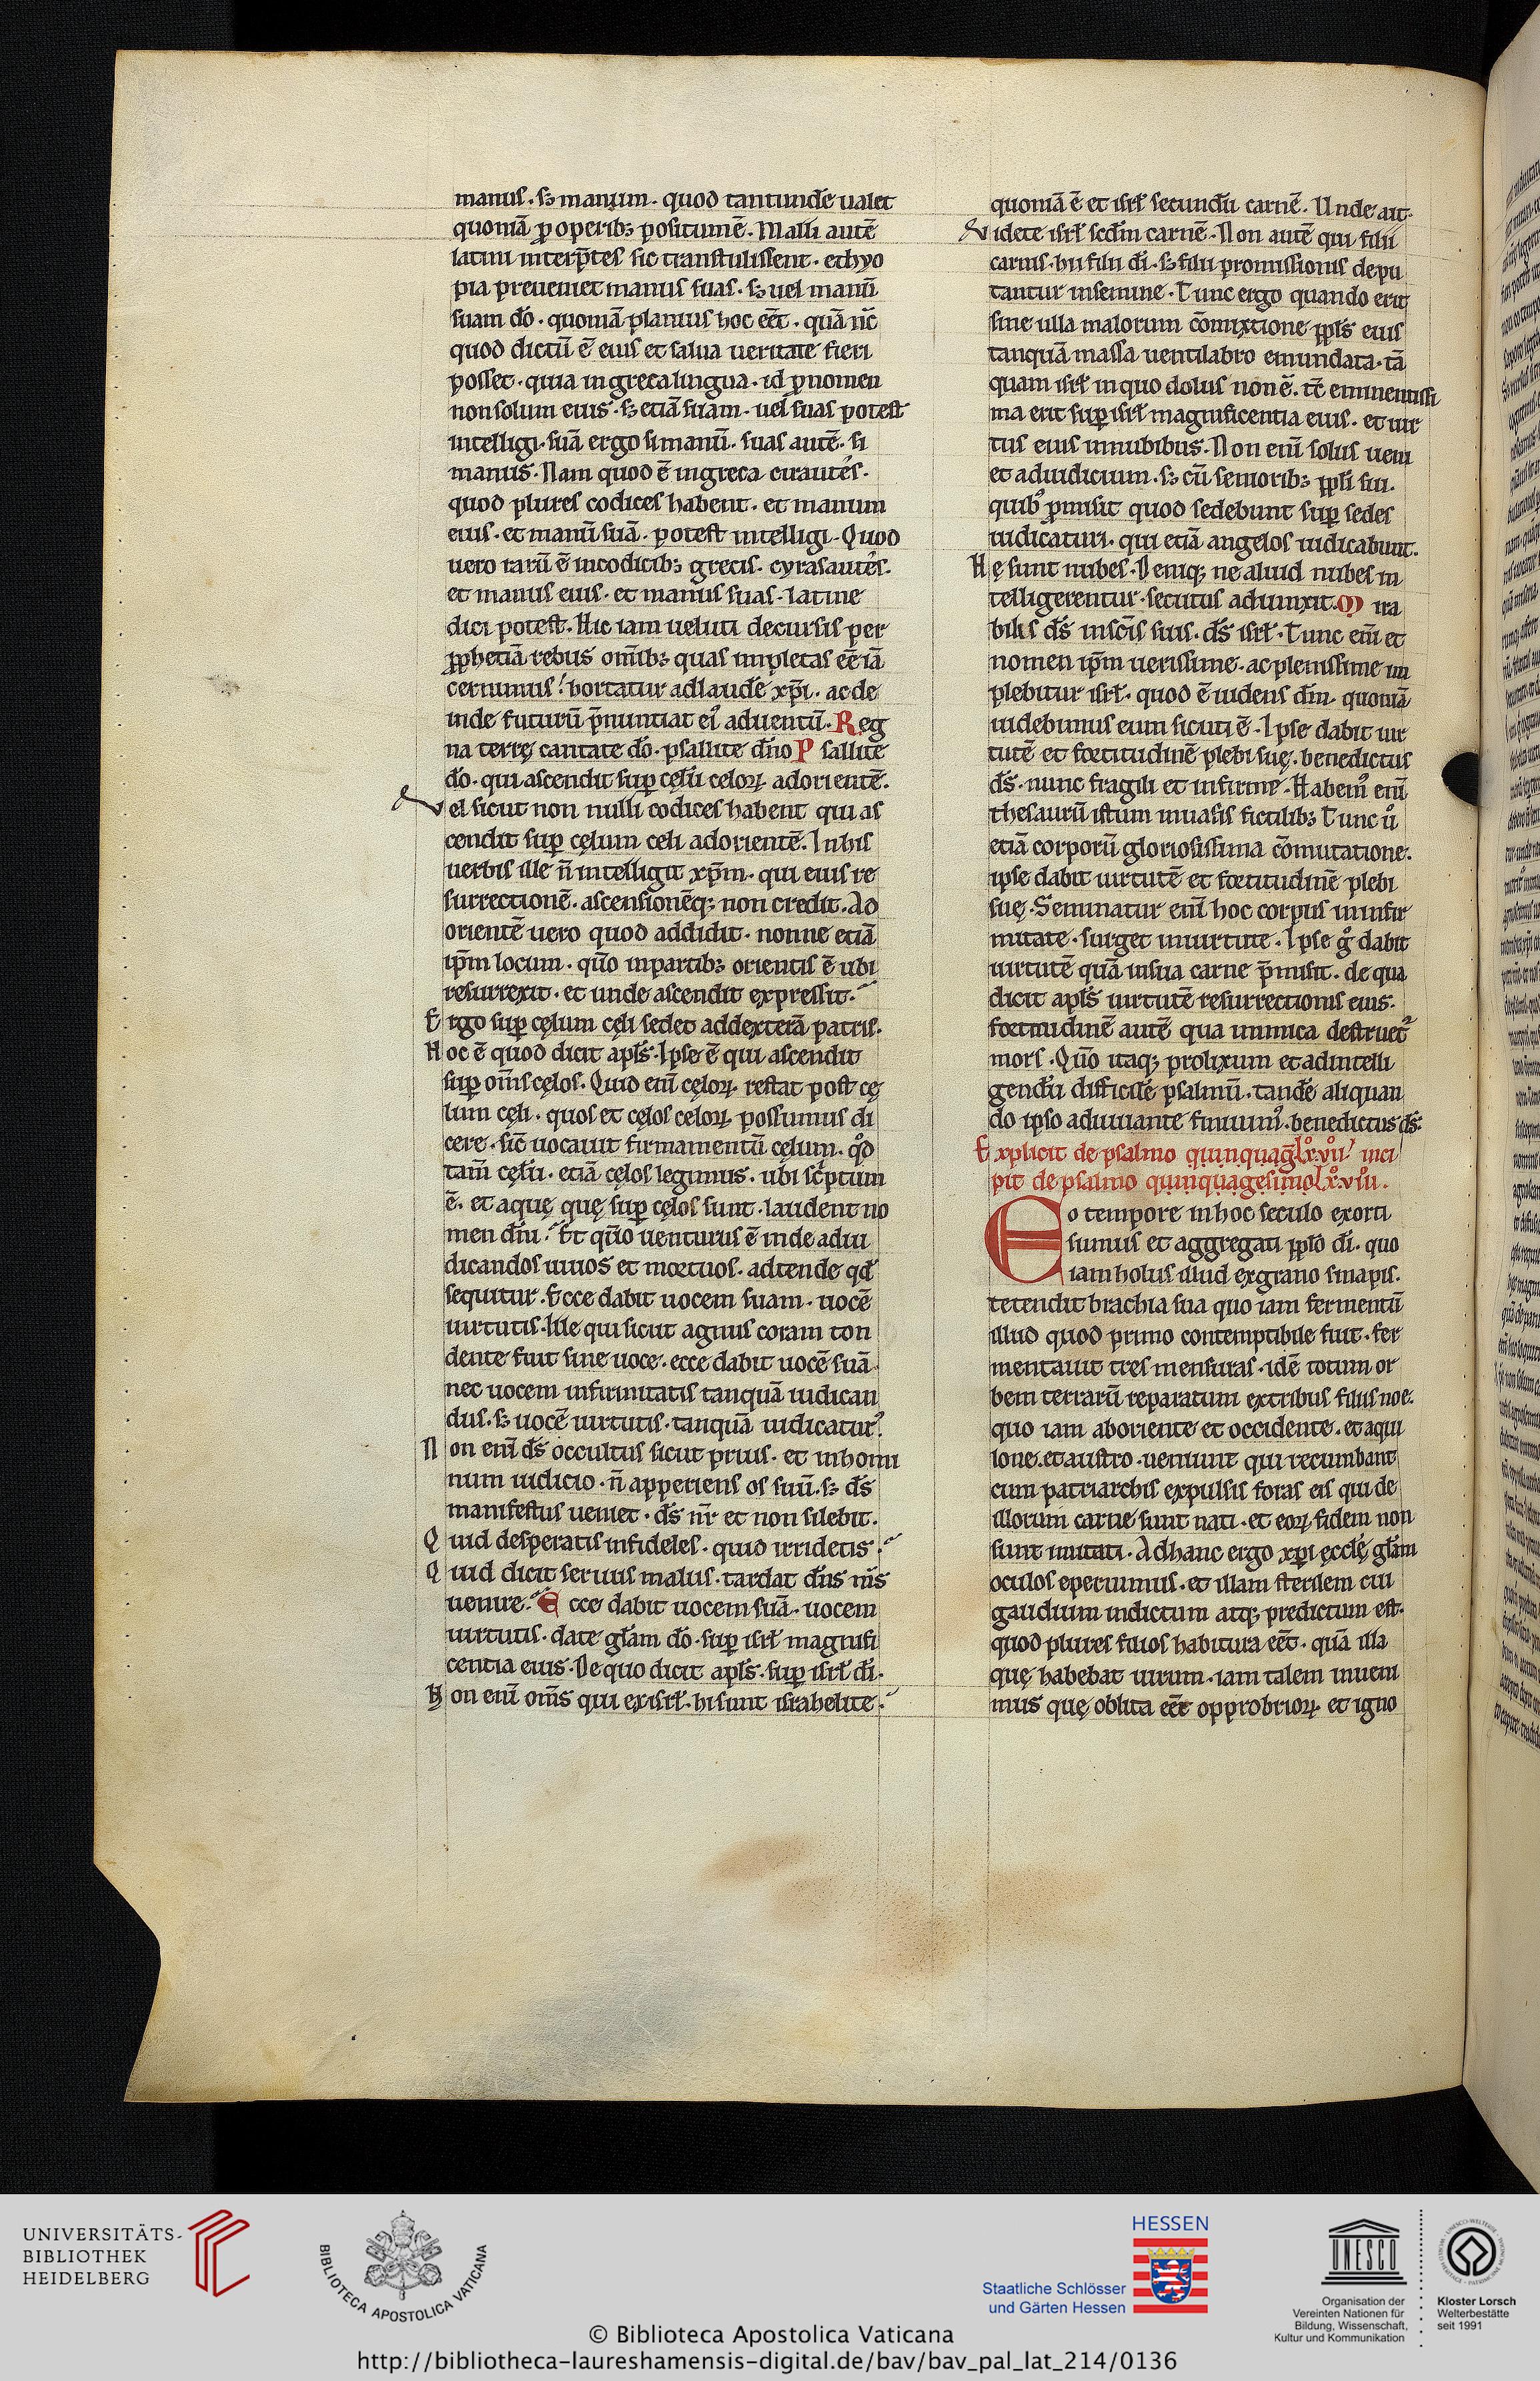 manus. sꝫ manum. quod tantundē ualet
quoniā ꝓ operibꝫ positum ē. Malli autē
latini interp̄tes sic transtulissent. ethyo
pia preueniet manus suas. sꝫ uel manū
suam dō. quoniā planius hoc eēt. quā nc̄
quod dictū ē eius et salua ueritate fieri
posset. quia in greca lingua. id ꝓnomen
non solum eius. sꝫ etiā suam. uel suas potest
intelligi. suā ergo si manū. suas autē. si
manus. Nam quod ē in greca cirautes.
quod plures codices habent. et manum
eius. et manū suā. potest intelligi. Quod
uero rarū ē in codicibꝫ grecis. cyrasautes.
et manus eius. et manus suas. latine
dici potest. Hic iam ueluti decursis per
ꝓphetiā rebus om̄ibꝫ quas impletas eē iā
cernimus! hortatur ad laudē xp̄i. ac de
inde futurū p̄nuntiat eiꝰ aduentū. Reg
na terrę cantate dō. psallite dn̄o Psallite
dō. qui ascendit suꝑ cęlū celoꝝ ad orientē.
Vel sicut non nulli codices habent qui as
cendit suꝑ cęlum celi ad orientē. In his
uerbis ille n̄ intelligit xp̄m. qui eius re
surrectionē. ascensionēqꝫ non credit. Ad
orientē uero quod addidit. nonne etiā
ip̄m locum. qm̄o in partibꝫ orientis ē ubi
resurrexit. et unde ascendit expressit.
Ergo suꝑ cęlum cęli sedet ad dexterā patris.
Hoc ē quod dicit apl̄s. Ipse ē qui ascendit
suꝑ om̄s cęlos. Quid enī cęloꝝ restat post cę
lum cęli. quos et cęlos celoꝝ possumus di
cere. sic̄ uocauit firmamentū cęlum. qd̊
tam̄ cęlū. etiā cęlos legimus. ubi sc̄ptum
ē. et aquę quę suꝑ cęlos sunt. laudent no
men dn̄i. Et qm̄o uenturus ē inde ad iu
dicandos uiuos et mortuos. adtende qd̄
sequitur. Ecce dabit uocem suam. uocē
uirtutis. Ille qui sicut agnus coram ton
dente fuit sine uoce. ecce dabit uocē suā.
nec uocem infirmitatis tanquā iudican
dus. sꝫ uocē uirtutis. tanquā iudicaturꝰ.
Non enī ds̄ occultus sicut prius. et in homi
num iudicio. n̄ apperiens os suū. sꝫ ds̄
manifestus ueniet. ds̄ nr̄ et non silebit.
Quid desperatis infideles. quid irridetis.
Quid dicit seruus malus. tardat dn̄s ms̄
uenire. Ecce dabit uocem suā. uocem
uirtutis. date gl̄am dō. suꝑ isrł magnifi
centia eius. De quo dicit apl̄s. suꝑ isrł dī.
Non enī om̄s qui ex isrł. hi sunt israhelite.
quoniā ē et isrł secundū carnē. Unde ait.
Videte isrł scd̄m carnē. Non autē qui filii
carnis. hii filii dī. sꝫ filii promissionis depu
tantur in semine. Tunc ergo quando erit
sine ulla malorum cōmixtione ppl̄s eius
tanquā massa uentilabro emundata. tā
quam isrł in quo dolus non ē. tc̄ eminentissi
ma erit suꝑ isrł magnificentia eius. et uir
tus eius in nubibus. Non enī solus ueni
et ad iudicium. sꝫ cū senioribꝫ ppl̄i sui.
quibꝰ ꝓmisit quod sedebunt suꝑ sedes
iudicaturi. qui etiā angelos iudicabunt.
Hę sunt nubes. Deniqꝫ ne aliud nubes in
telligerentur. secutus adiunxit. Mira
bilis ds̄ in sc̄is suis. ds̄ isrł. Tunc enī et
nomen ip̄m uerissime. ac plenissime im
plebitur isrł. quod ē uidens dm̄. quoniā
uidebimus eum sicuti ē. Ipse dabit uir
tutē et fortitudinē plebi suę. benedictus
ds̄. nunc fragili et infirme. Habemꝰ enī
thesaurū istum in uasis fictilibꝫ Tunc u̅o
etiā corporū gloriosissima cōmutatione.
ipse dabit uirtutē et fortitudinē plebi
suę. Seminatur enī hoc corpus in infir
mitate. surget in uirtute. Ipse gͦ dabit
uirtutē quā in sua carne p̄misit. de qua
dicit apl̄s uirtutē resurrectionis eius.
fortitudinē autē qua inimica destruetᷣ
mors. Qm̄o itaqꝫ prolixum et ad intelli
gendū difficilē psalmū. tandē aliquan
do ipso adiuuante finiuimꝰ. benedictus ds̄.
Explicit de psalmo quinquag̅ lxͦ.vii. inci
pit de psalmo quinquagesimo lxͦ.viii.
Eo tempore in hoc seculo exorti
sumus et aggregati ppl̄o dī. quo
iam holus illud ex grano sinapis.
tetendit brachia sua quo iam fermentū
illud quod primo contemptibile fuit. fer
mentauit tres mensuras. idē totum or
bem terrarū reparatum ex tribus filiis noe.
quo iam ab oriente et occidente. et aqui
lone. et austro. ueniunt qui recumbant
cum patriarchis expulsis foras eis qui de
illorum carne sunt nati. et eoꝝ fidem non
sunt imitati. Ad hanc ergo xp̄i ęcclę gl̄am
oculos eperuimus. et illam sterilem cui
gaudium indictum atqꝫ predictum est.
quod plures filios habitura eēt. quā illa
quę habebat uirum. iam talem inueni
mus quę oblita eēt opprobrioꝝ et igno
UNIVERSITÄTS-
BIBLIOTHEK
HEIDELBERG
BIBLIOTECA APOSTOLICA VATICANA
HESSEN
Staatliche Schlösser
und Gärten Hessen
UNESCO
Organisation der
Vereinten Nationen für
Bildung, Wissenschaft,
Kultur und Kommunikation
Kloster Lorsch
Welterbestätte
seit 1991
© Biblioteca Apostolica Vaticana
http://bibliotheca-laureshamensis-digital.de/bav/bav_pal_lat_214/0136